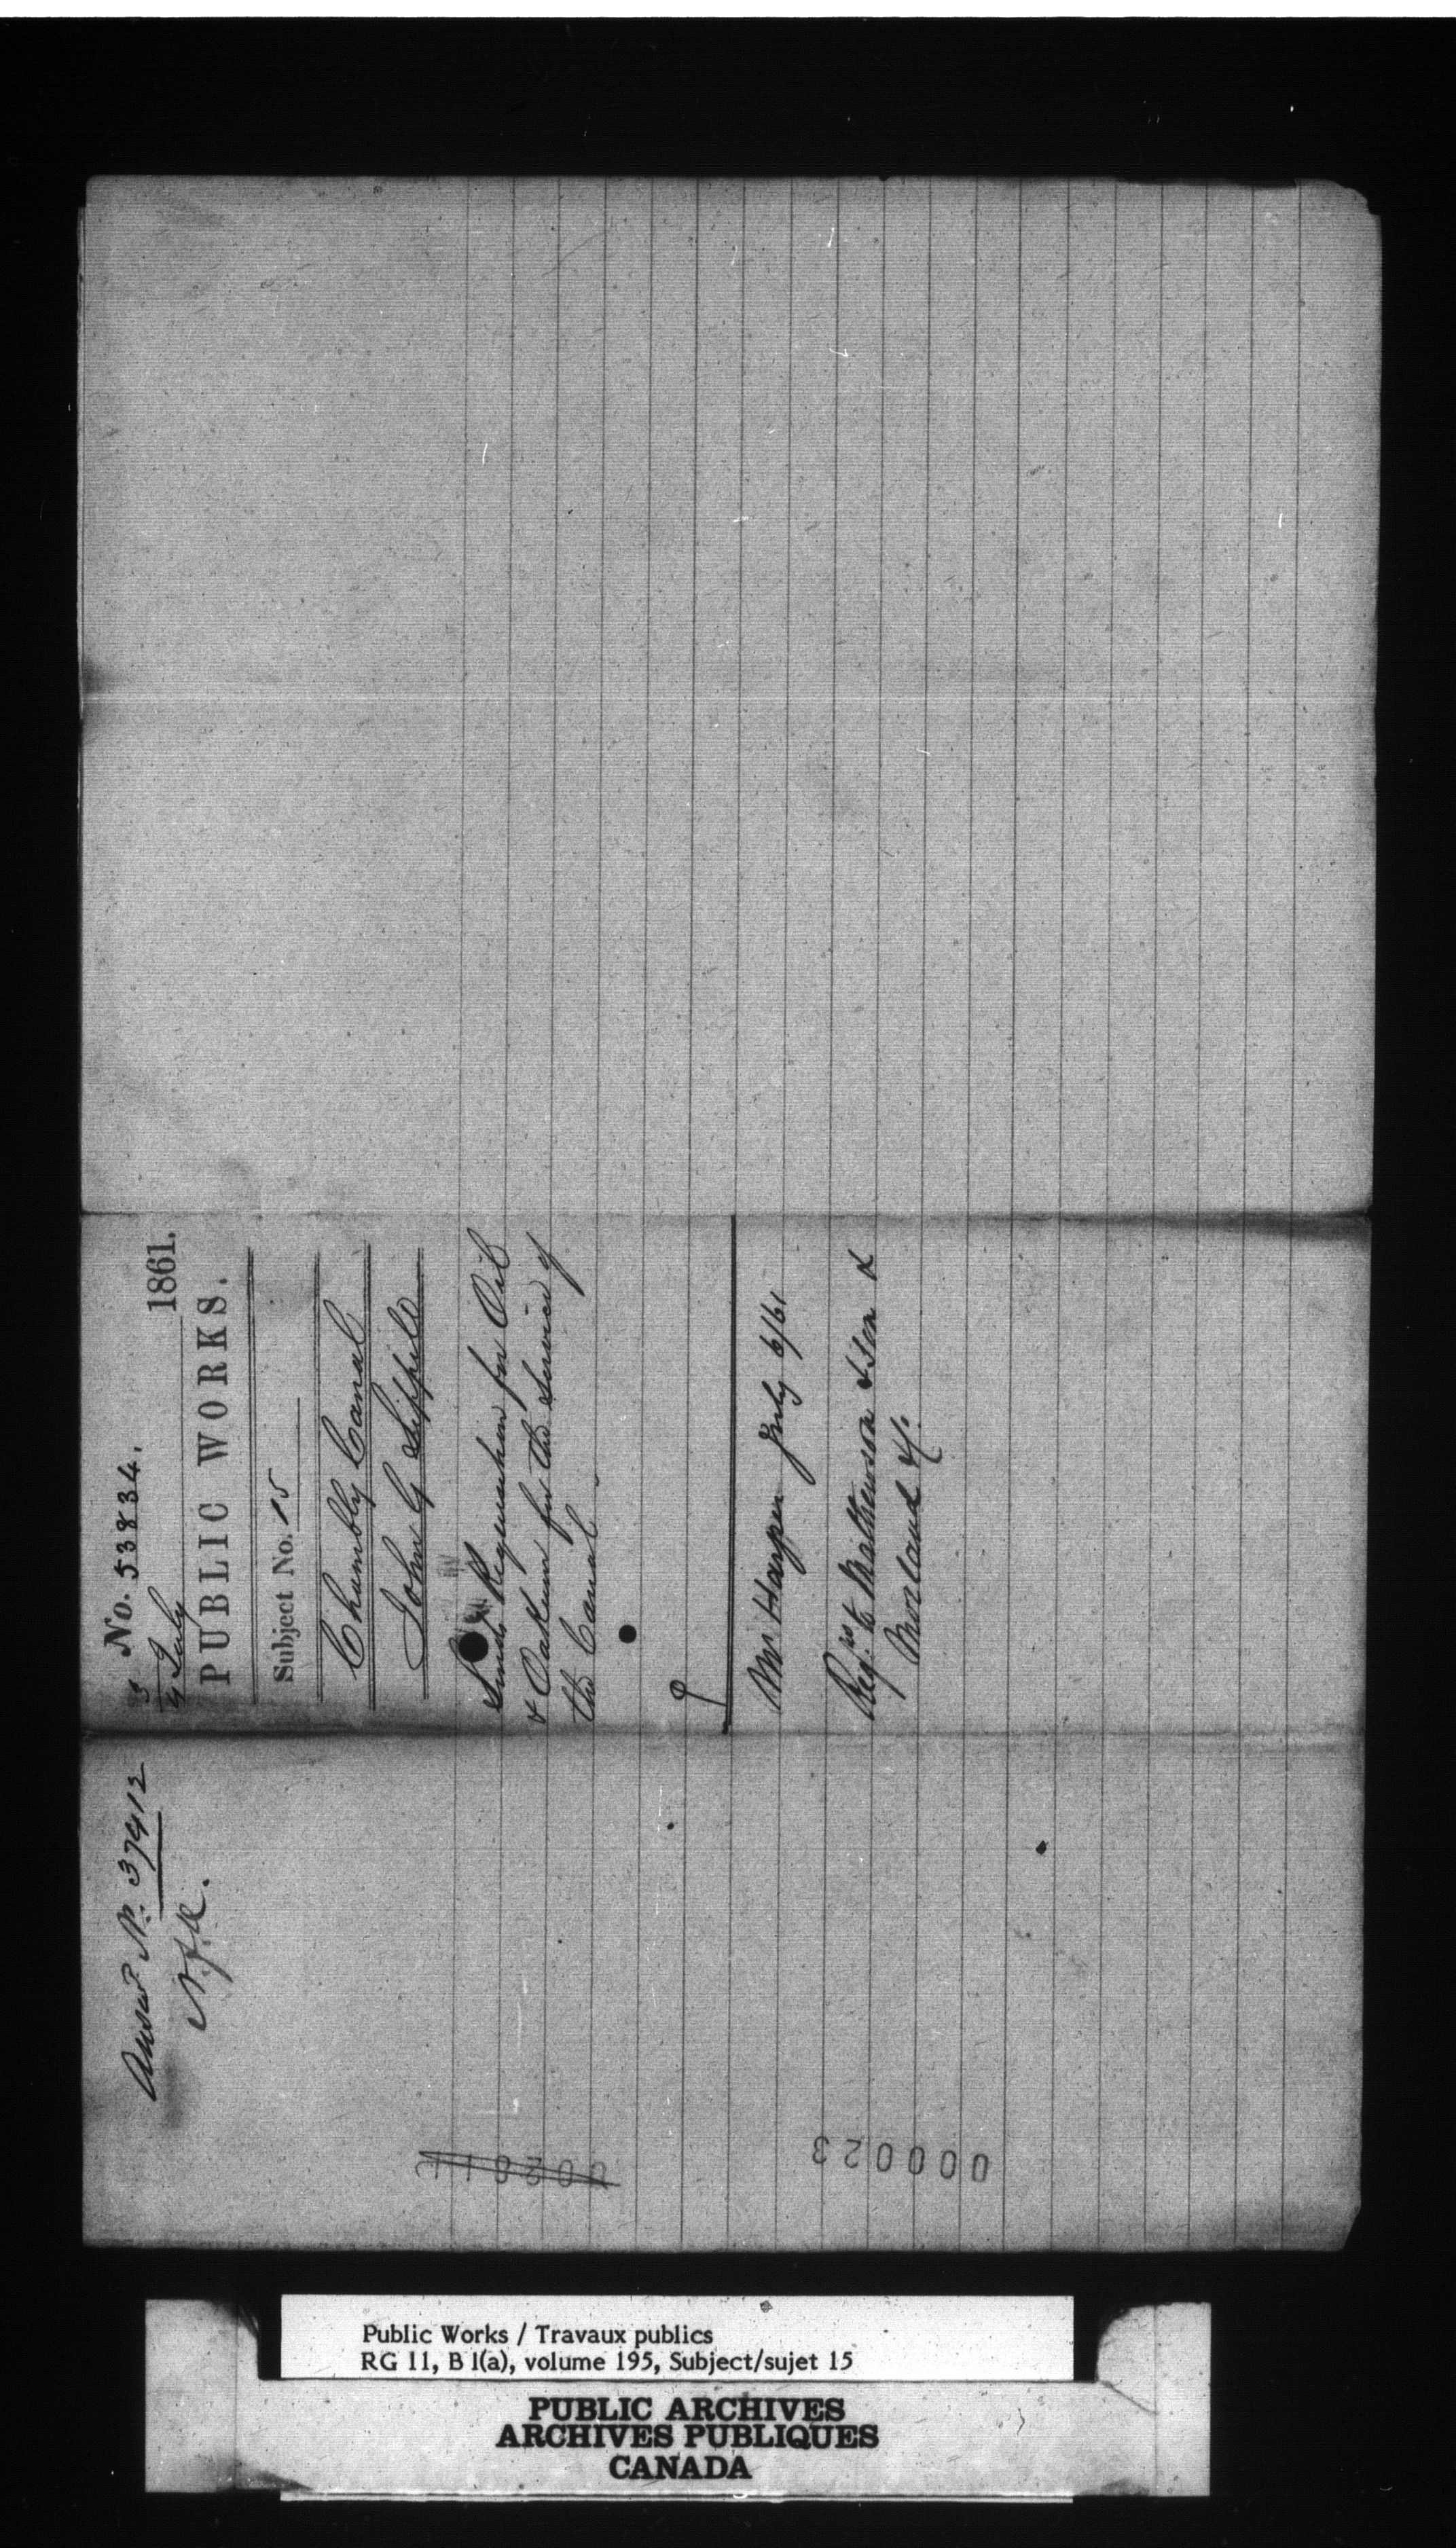 Answd No. 37412
N.f.R.
No. 53834.
3
4 July 1861.
PUBLIC WORKS.
Subject No. 15
Chambly Canal
John G Sippell
Sends Requisition for Oil
& Oakum for the Service of
the Canal
Mr Harper July 6/61
Reqns to Mathewson & Son &
Morland &c.
000023
Public Works / Travaux publics
RG 11, B 1(a), volume 195, Subject/sujet 15
PUBLIC ARCHIVES
ARCHIVES PUBLIQUES
CANADA